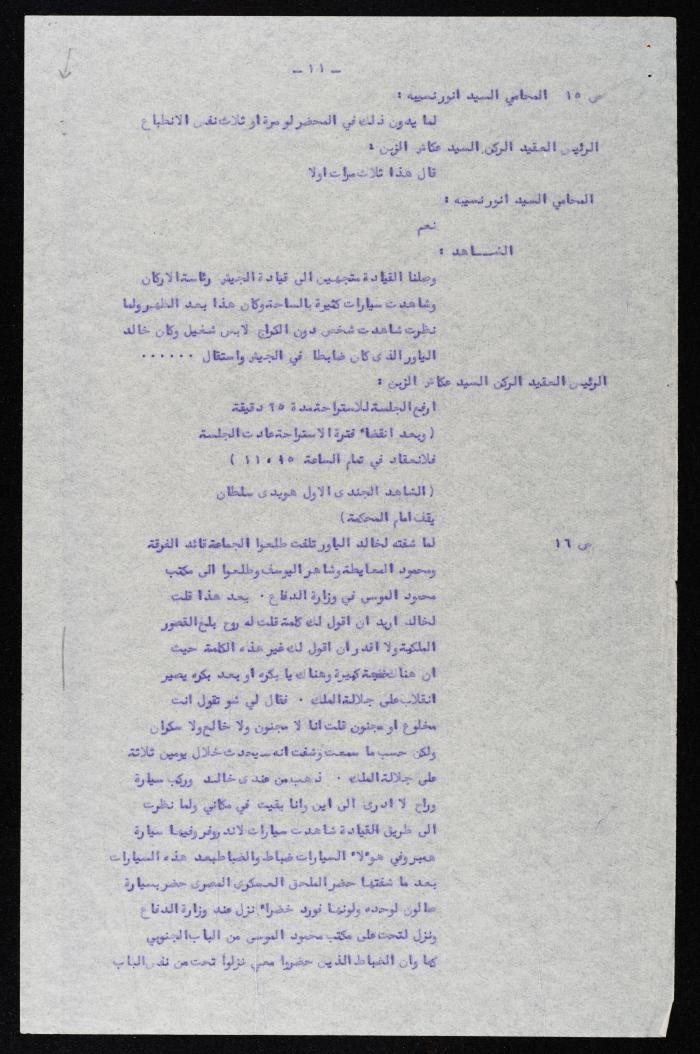 - ١١ -
ص ١٥ المحامي السيد انور نسيبه :
لما يدون ذلك في المحضر لو مرة او ثلاث نفس الانطباع
الرئيس العقيد الركن السيد عكاش الزبن :
قال هذا ثلاث مرات اولا
المحامي السيد انور نسيبه :
نعم
الشـــاهد :
وصلنا القيادة متجهين الى قيادة الجيش رئاسة الاركان
وشاهدت سيارات كثيرة بالساحة وكان هذا بعد الظهر ولما
نظرت شاهدت شخص دون الكراج لابس شغيل وكان خالد
الياور الذى كان ضابطا في الجيش واستقال ......
الرئيس العقيد الركن السيد عكاش الزبن :
ارفع الجلسة للاستراحة مدة ٢٥ دقيقة
( وبعد انقضاء فترة الاستراحة عادت الجلسة
فلانعقاد في تمام الساعة ١١٠٩٥ )
( الشاهد الجندى الاول هويدى سلطان
يقف امام المحكمة )
ص ١٦ لما شفته لخالد الياور تلفت طلعوا الجماعة قائد الفرقة
ومحمود المعايطة وشاهر اليوسف وطلعوا الى مكتب
محمود الموسى في وزارة الدفاع . بعد هذا قلت
لخالد اريد ان اقول لك كلمة قلت له روح بلغ القصور
الملكية ولا اقدر أن اقول لك غير هذه الكلمة حيث
ان هناك كبيرة وهناك يا بكره او بعد بكره يصير
انقلاب على جلالة الملك . فقال لي شو تقول انت
مخلوع او مجنون قلت انا لا مجنون ولا خالع ولا سكران
ولكن حسب ما سمعت وشفت انه سيحدث خلال يومين ثلاثة
على جلالة الملك . ذهب من عندى خالد وركب سيارة
وراح لا ادرى الى اين وانا بقيت في مكاني ولما نظرت
الى طريق القيادة شاهدت سيارات لاندروفر وفيها سيارة
همبر وفي هولاء السيارات ضباط والضباط بعد هذه السيارات
بعد ما شفتها حضر الملحق العسكرى المصرى حضر بسيارة
صالون لوحده ولونها فورد خضراء نزل عند وزارة الدفاع
ونزل لتحت على مكتب محمود الموسى من الباب الجنوبي
كما وان الضباط الذين حضروا معي نزلوا تحت من نفس الباب